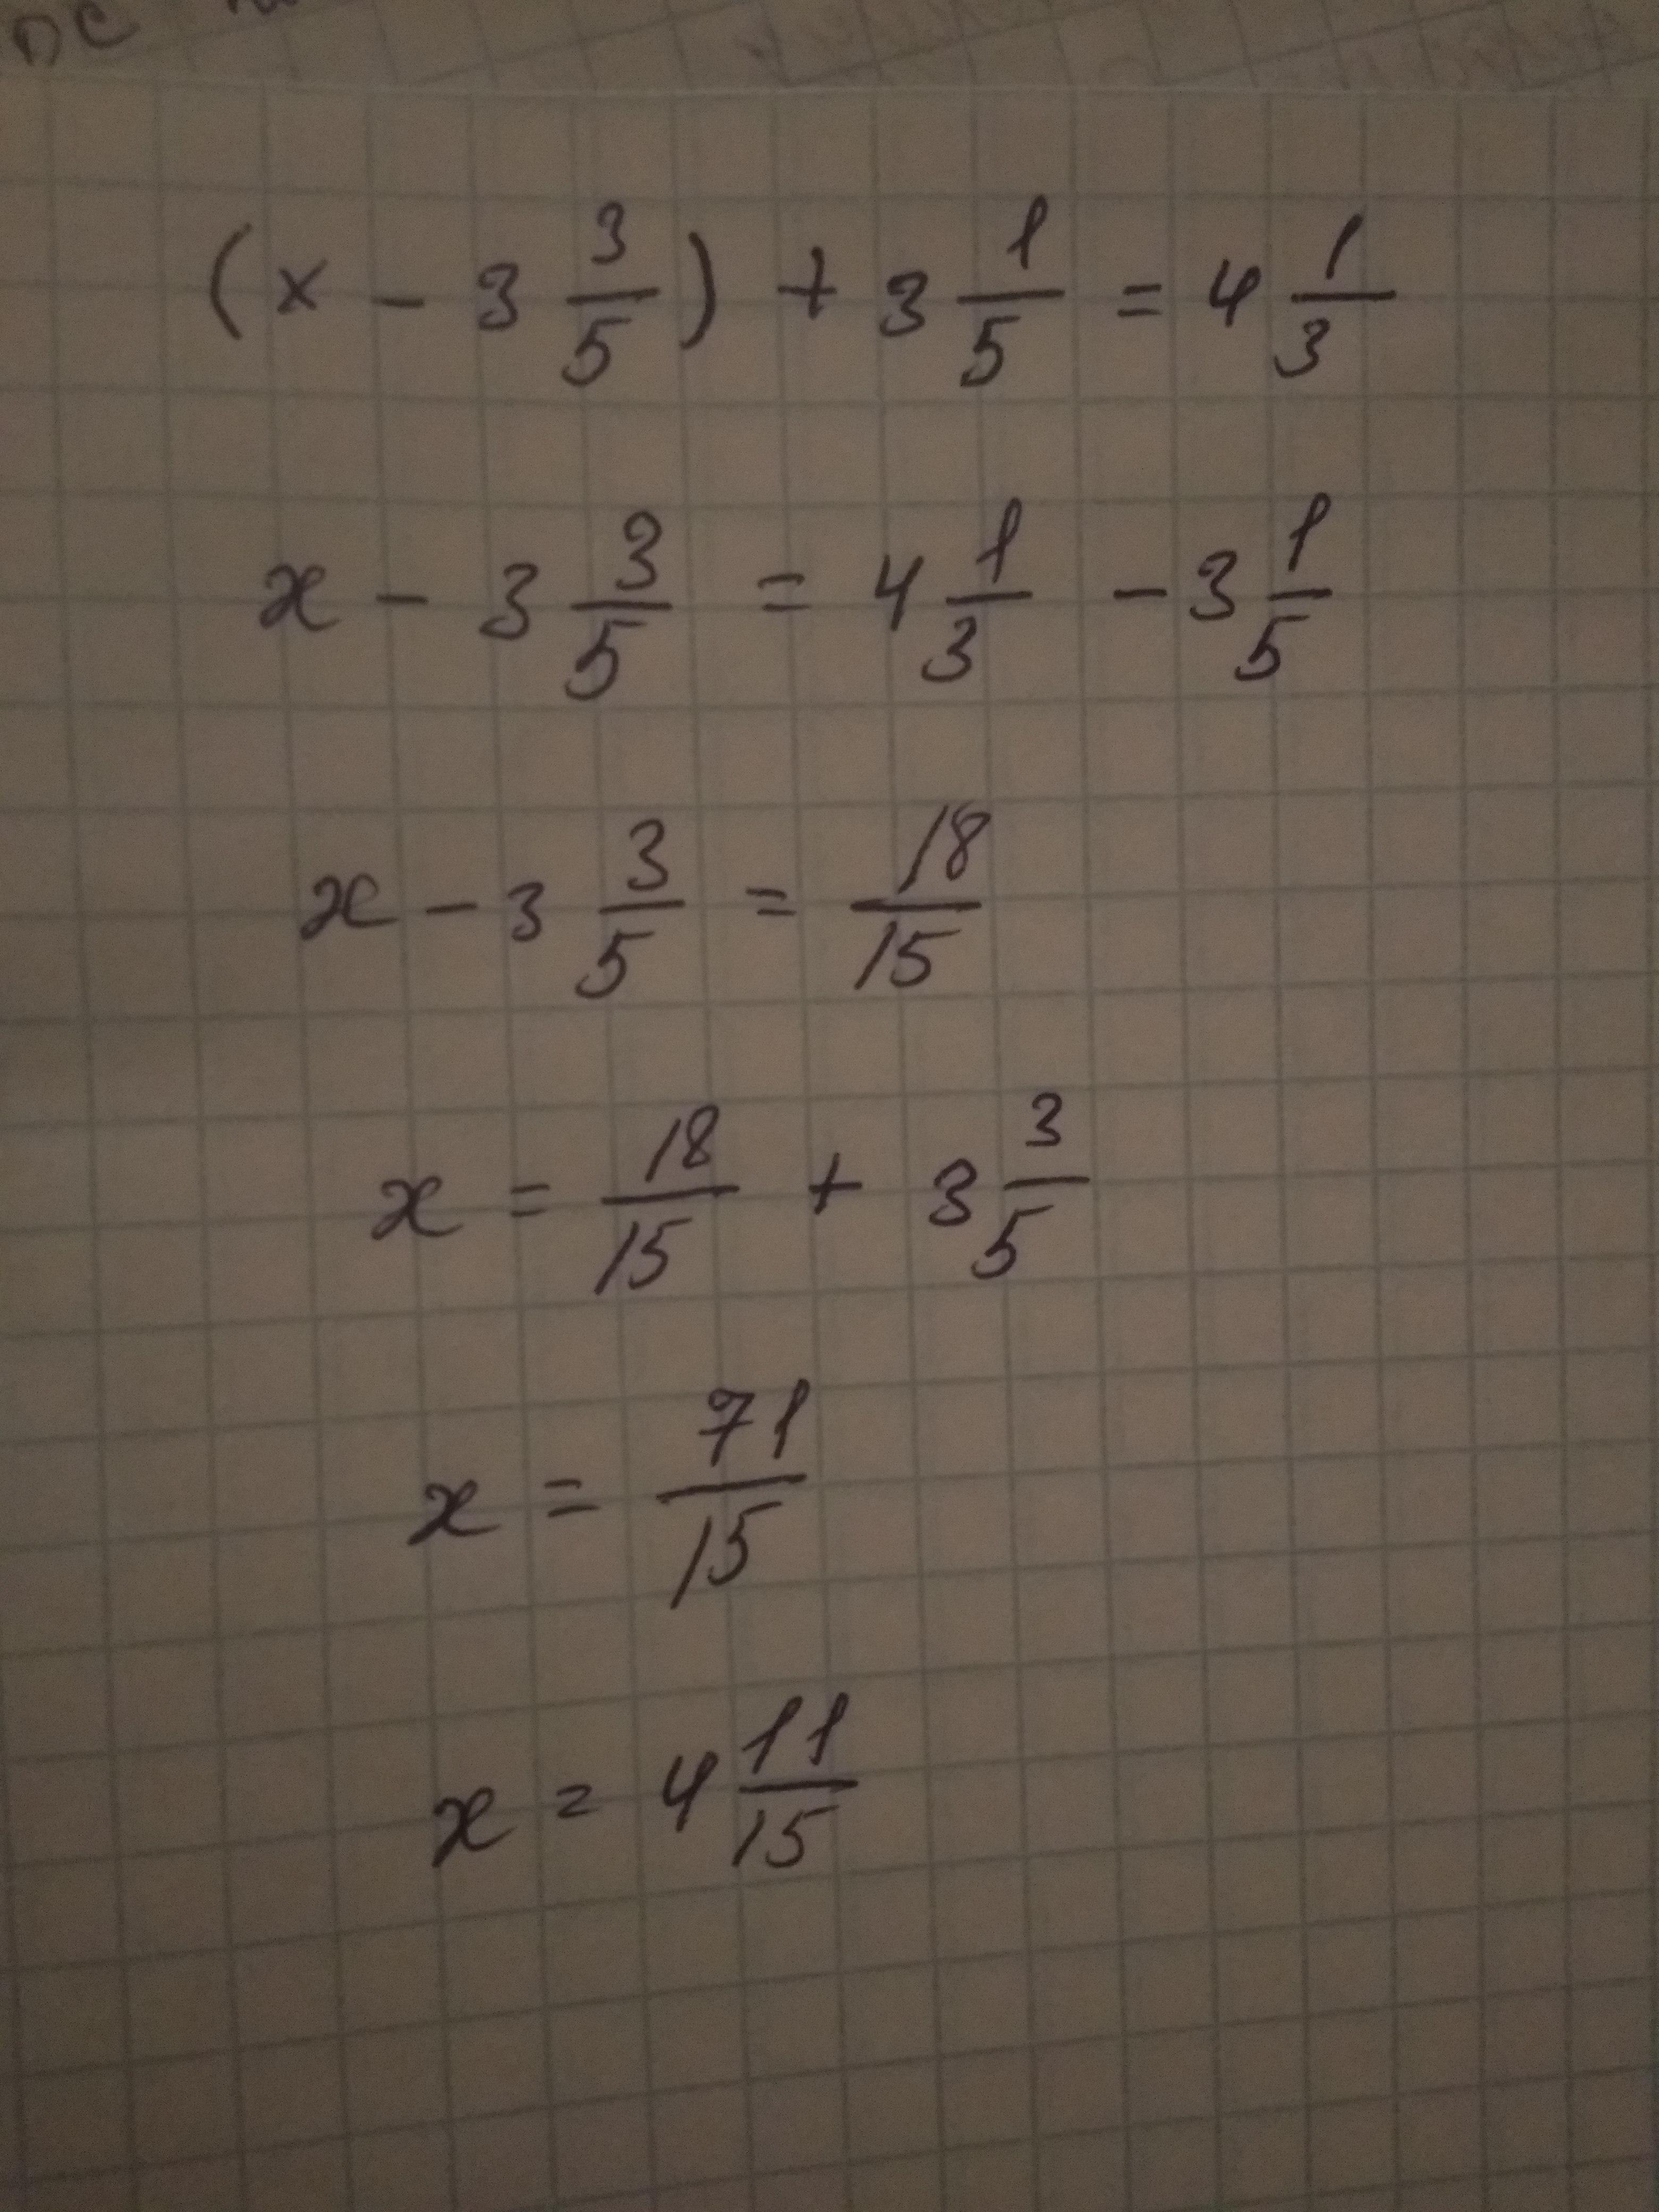 (x - 3 3/5) + 3 1/5 = 4 1/3
x - 3 3/5 = 4 1/3 - 3 1/5
x - 3 3/5 = 18/15
x = 18/15 + 3 3/5
x = 71/15
x = 4 11/15